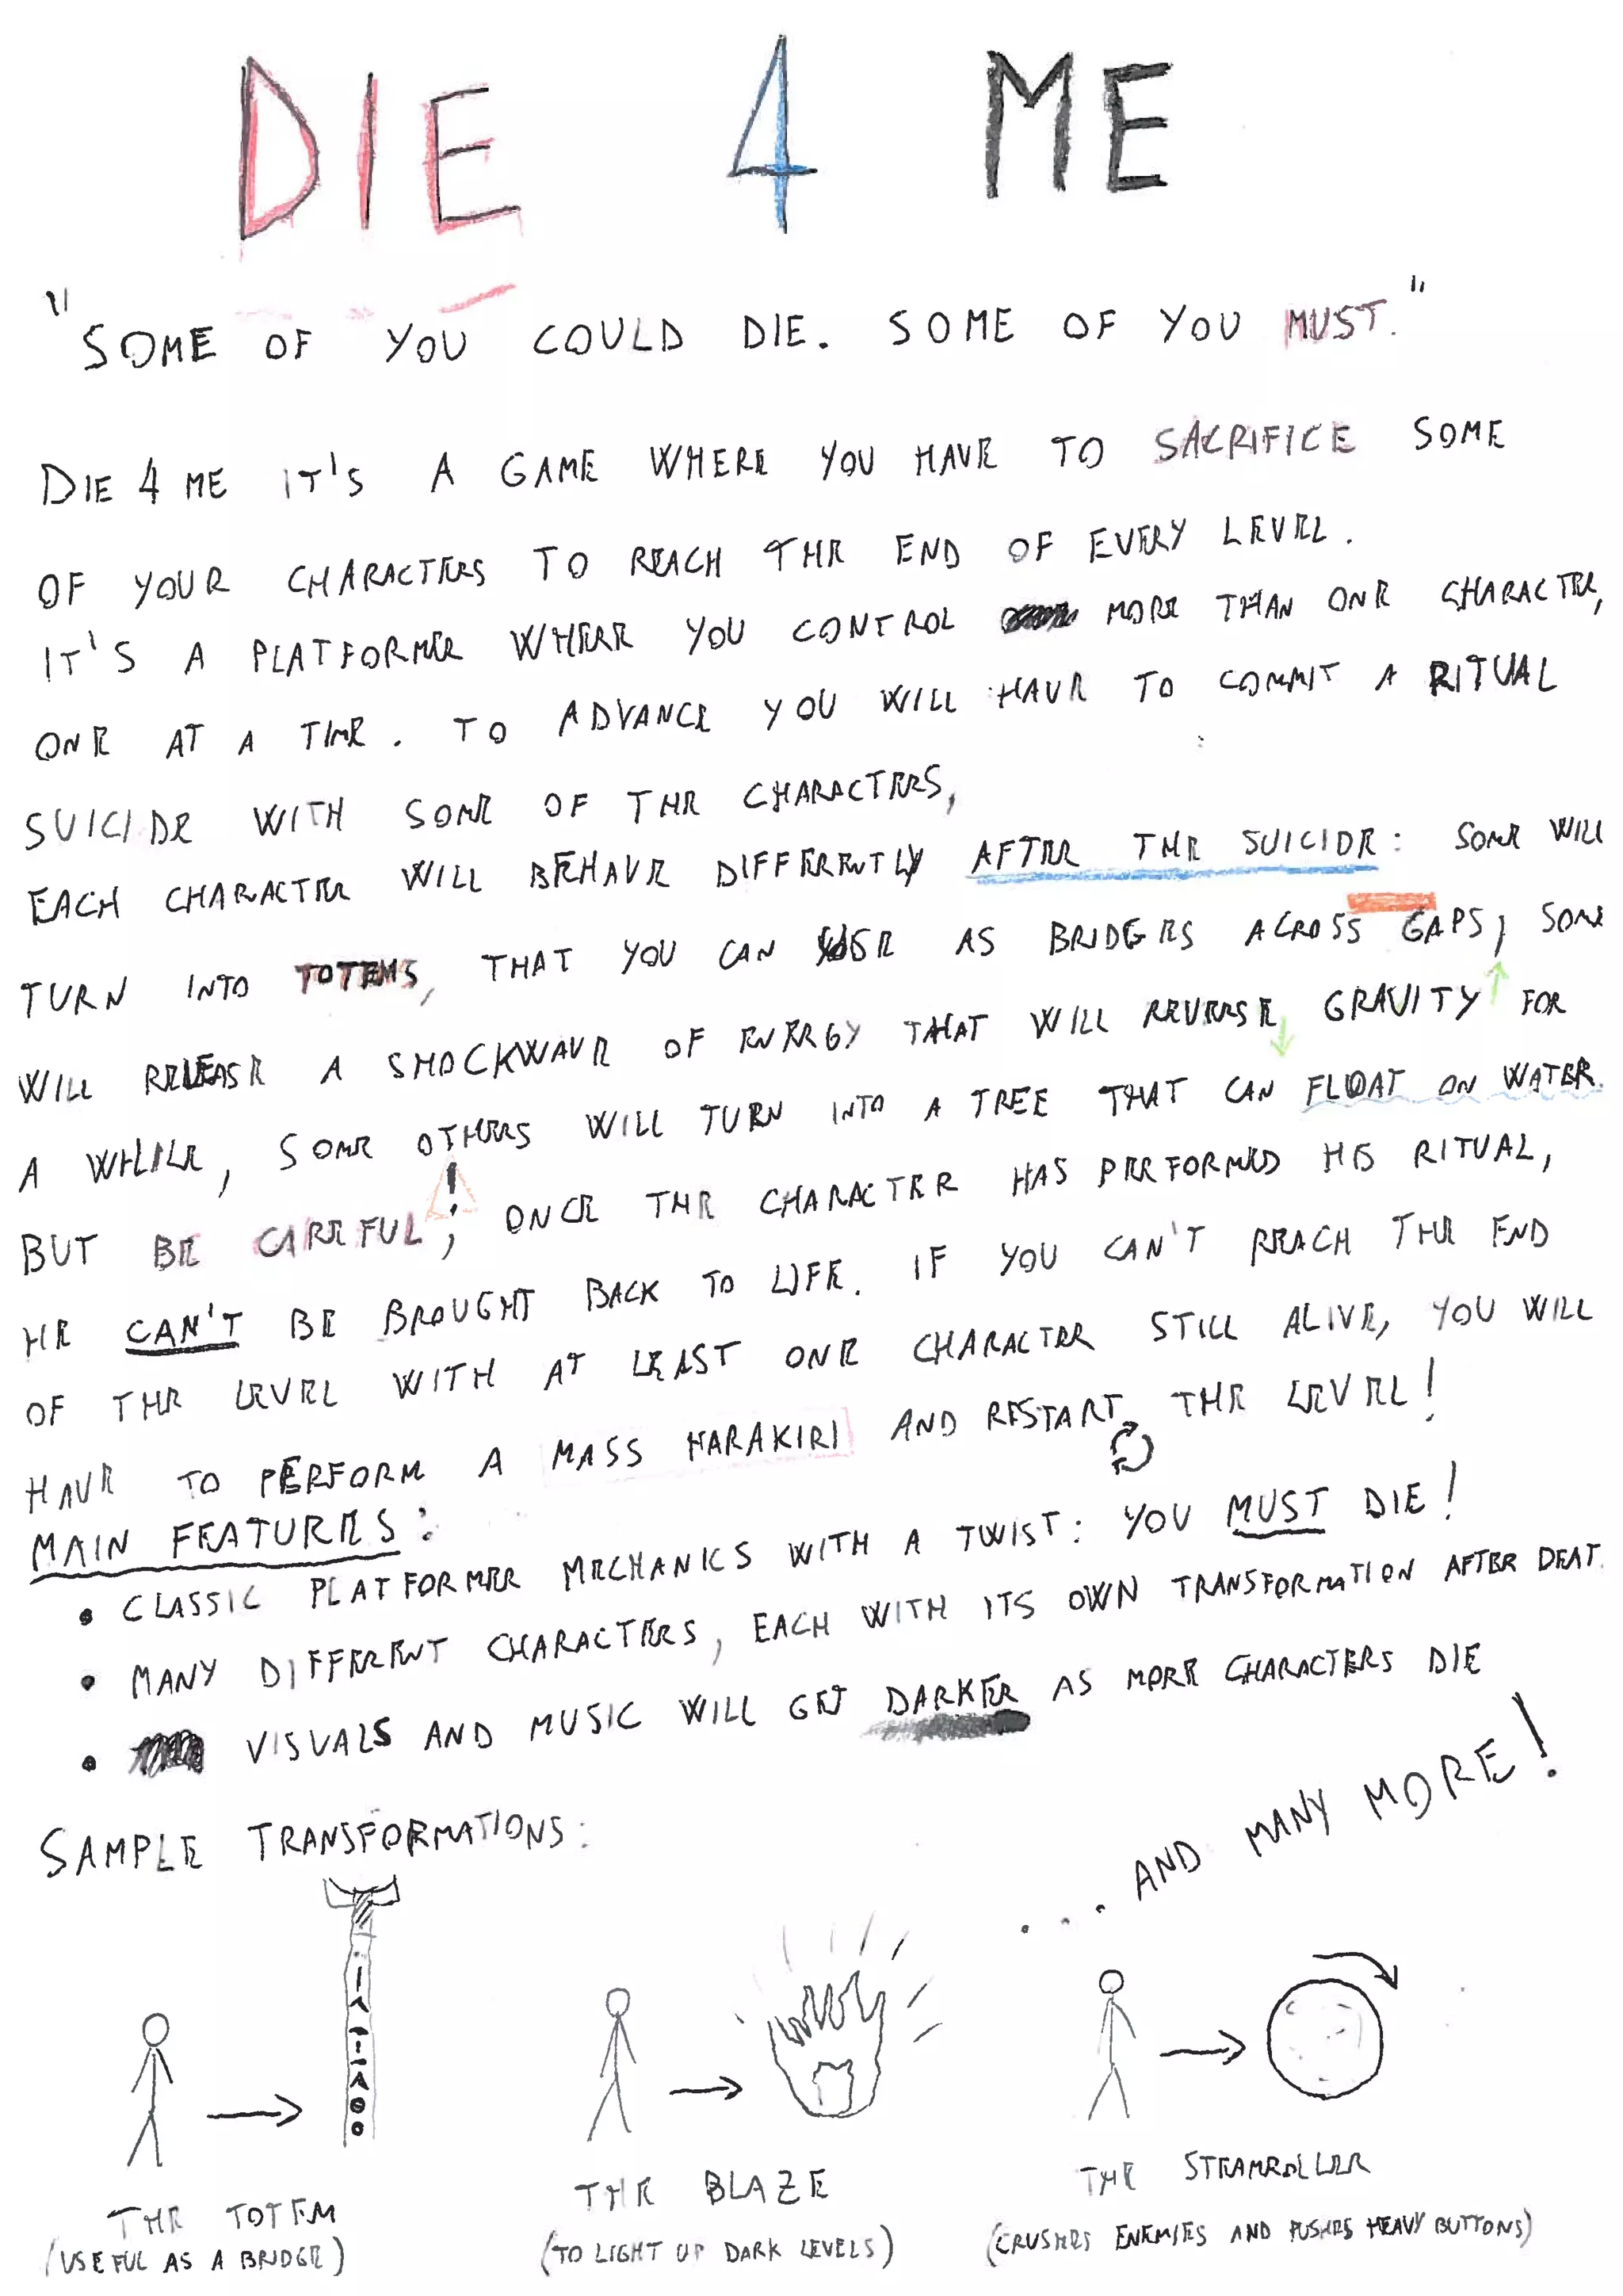 DIE 4 ME
"SOME OF YOU COULD DIE. SOME OF YOU MUST."
DIE 4 ME IT'S A GAME WHERE YOU HAVE TO SACRIFICE SOME
OF YOUR CHARACTERS TO REACH THE END OF EVERY LEVEL.
IT'S A PLATFORMER WHERE YOU CONTROL MORE THAN ONE CHARACTER,
ONE AT A TIME. TO ADVANCE YOU WILL HAVE TO COMMIT A RITUAL
SUICIDE WITH SOME OF THE CHARACTERS,
EACH CHARACTER WILL BEHAVE DIFFERENTLY AFTER THE SUICIDE: SOME WILL
TURN INTO TOTEMS, THAT YOU CAN USE AS BRIDGES ACROSS GAPS, SOME
WILL RELEASE A SHOCKWAVE OF ENERGY THAT WILL REVERSE GRAVITY FOR
A WHILE, SOME OTHERS WILL TURN INTO A TREE THAT CAN FLOAT ON WATER.
BUT BE CAREFUL!, ONCE THE CHARACTER HAS PERFORMED HIS RITUAL,
HE CAN'T BE BROUGHT BACK TO LIFE. IF YOU CAN'T REACH THE END
OF THE LEVEL WITH AT LEAST ONE CHARACTER STILL ALIVE, YOU WILL
HAVE TO PERFORM A MASS HARAKIRI AND RESTART THE LEVEL!
MAIN FEATURES:
• CLASSIC PLATFORMER MECHANICS WITH A TWIST: YOU MUST DIE!
• MANY DIFFERENT CHARACTERS, EACH WITH ITS OWN TRANSFORMATION AFTER DEAT.
• VISUALS AND MUSIC WILL GET DARKER AS MORE CHARACTERS DIE
... AND MANY MORE!
SAMPLE TRANSFORMATIONS:
THE TOTEM
(USEFUL AS A BRIDGE)
THE BLAZE
(TO LIGHT UP DARK LEVELS)
THE STEAMROLLER
(CRUSHES ENEMIES AND PUSHES HEAVY BUTTONS)